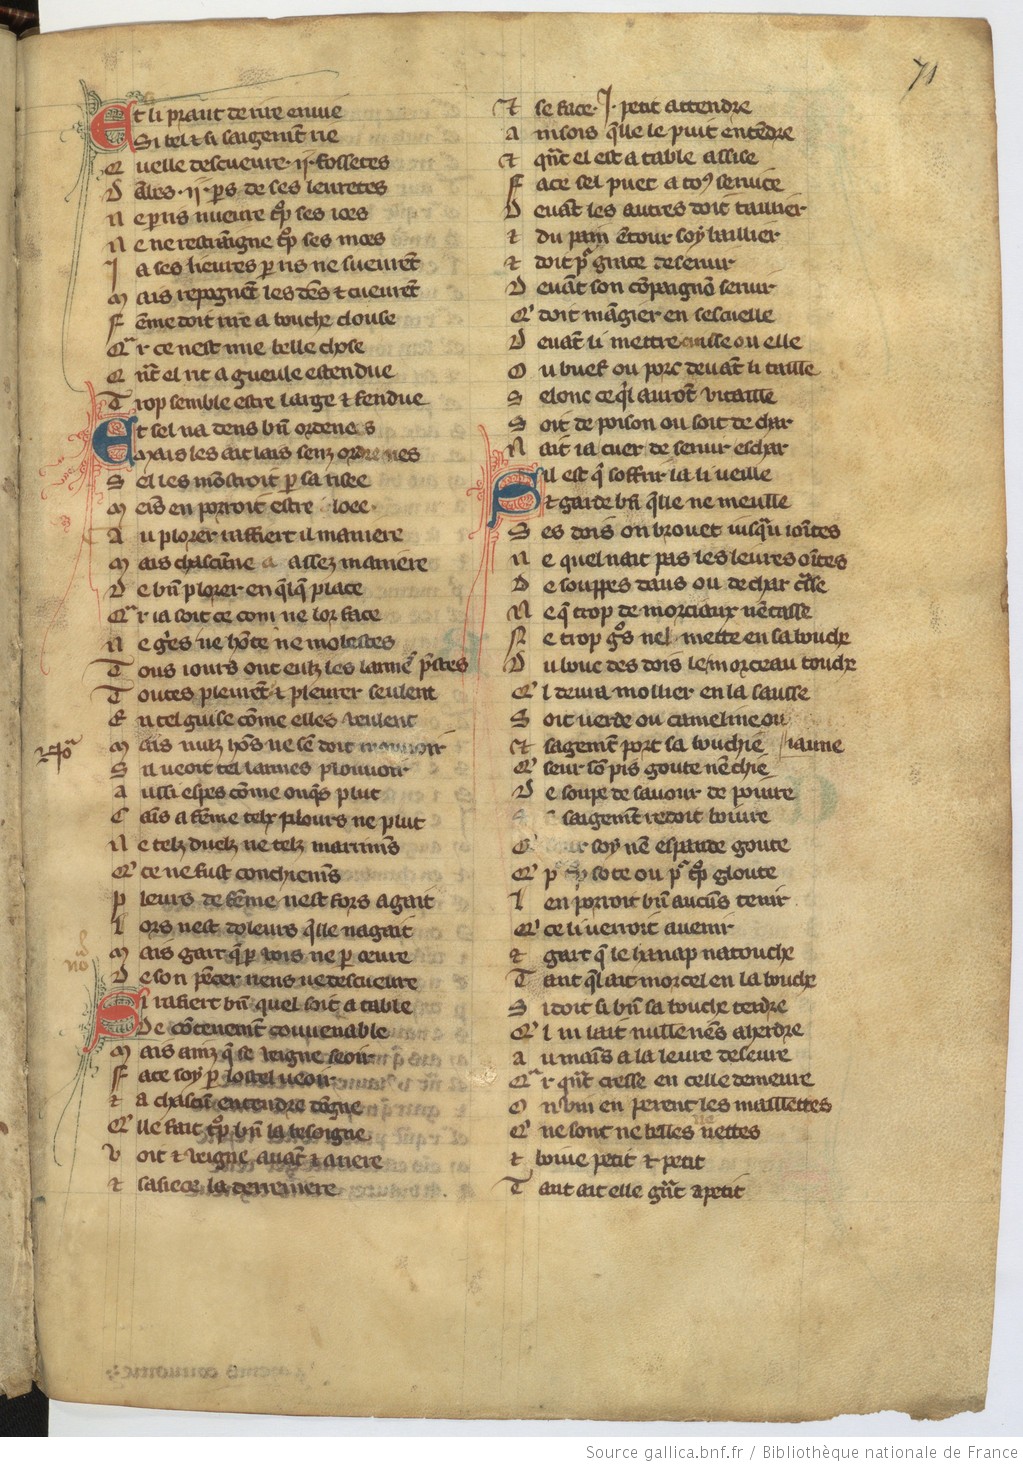 71
Et li prant de rire envie
Si bel et si saigemt rie
Quelle descueure .ij. fosseces
D ambes .ij. pars de ses leureces
N e par ris nueure trop ses ioes
N e ne restraigne trop ses moes
J a ses lieures par ris ne sueurēt
M ais repognēt les dēs ⁊ cueurēt
F ēme doit rire a bouche clouse
Qar ce nest mie belle chose
Q nt el rit a gueule estendue
T rop semble estre large ⁊ fendue
Et sel na dens bn̄ ordenes
Mais les ait lais senz ordre nes
S el les mōstroit par sa risee
M ains en porroit estre loee
A u plorer raffiert il maniere
M ais chascūne a assez maniere
D e bn̄ plorer en qlq place
Qar ia soit ce com ne lor face
N e gries ne hōte ne molestes
T ous iours ont eulz les larmes prestes
T outes pleurēt ⁊ pleurer seulent
E n tel guise cōme elles veulent
M ais nulz hōs ne se doit mouuoir
S il veoit tel larmes plouuoir
A ussi espes cōme onqs plut
C ains a fēme telx plours ne plut
N e telz duelz ne telz marrimēs
Q ce ne fust conchiemēs
P leurs de fēme nest fors agait
L ors nest doleurs qlle nagait
M ais gart q par vois ne par oeure
D e son pēcer riens ne descueure
Si rafiert bn̄ quel soit a table
De cōtenemt conuenable
M ais ainz q se veigne seoir
F ace soy par lostel ueoir
⁊ a chascū entendre dōgne
Q lle fait trop bn̄ la besoigne
V oit ⁊ veigne auāt ⁊ ariere
⁊ sasiece la derreniere
Et se face .J. petit attendre
A incois qlle le puit entēdre
Et qnt el est a table assise
F ace sel puet a tous seruice
D euāt les autres doit taillier
⁊ du pain ētour soy baillier
⁊ doit pr grace deseruir
D euāt son cōpaignō seruir
Q doit māgier en sescuelle
D euāt li mettre cuisse ou elle
O u buef ou porc deuāt li taille
S elonc ce ql auront vitaille
S oit de poison ou soit de char
N ait ia cuer de seruir eschar
Sil est q soffrir la li veille
Et garde bn̄ qlle ne meulle
S es dois ou brouet iusqu iointes
N e quel nait pas les leures ointes
D e souppes daus ou de char crasse
N e q trop de morciaux nētasse
N e trop gros nel mette en sa bouche
D u bout des dois le morceau touche
Q l deura mollier en la sausse
S oit uerde ou cameline ou
Et sagemt port sa bouchie iaune
Q seur sō pis goute nē chie
D e soupe de sauour de poiure
⁊ saigemt redoit boiure
Q sur soy nē espande goute
Q pr sote ou pr trop gloute
L en porroit bn̄ aucūs tenir
Q ce li verroit auenir
⁊ gart q le hanap natouche
T ant ql ait morcel en la bouche
S i doit si bn̄ sa bouche terdre
Q l ni lait nulle riens aherdre
A u mains a la leure deseure
Qar qnt cresse en celle demeure
O u vin en perent les maillettes
Q ne sont ne belles nettes
⁊ boiue petit ⁊ petit
T ant ait elle grnt apetit
Source gallica.bnf.fr / Bibliothèque nationale de France